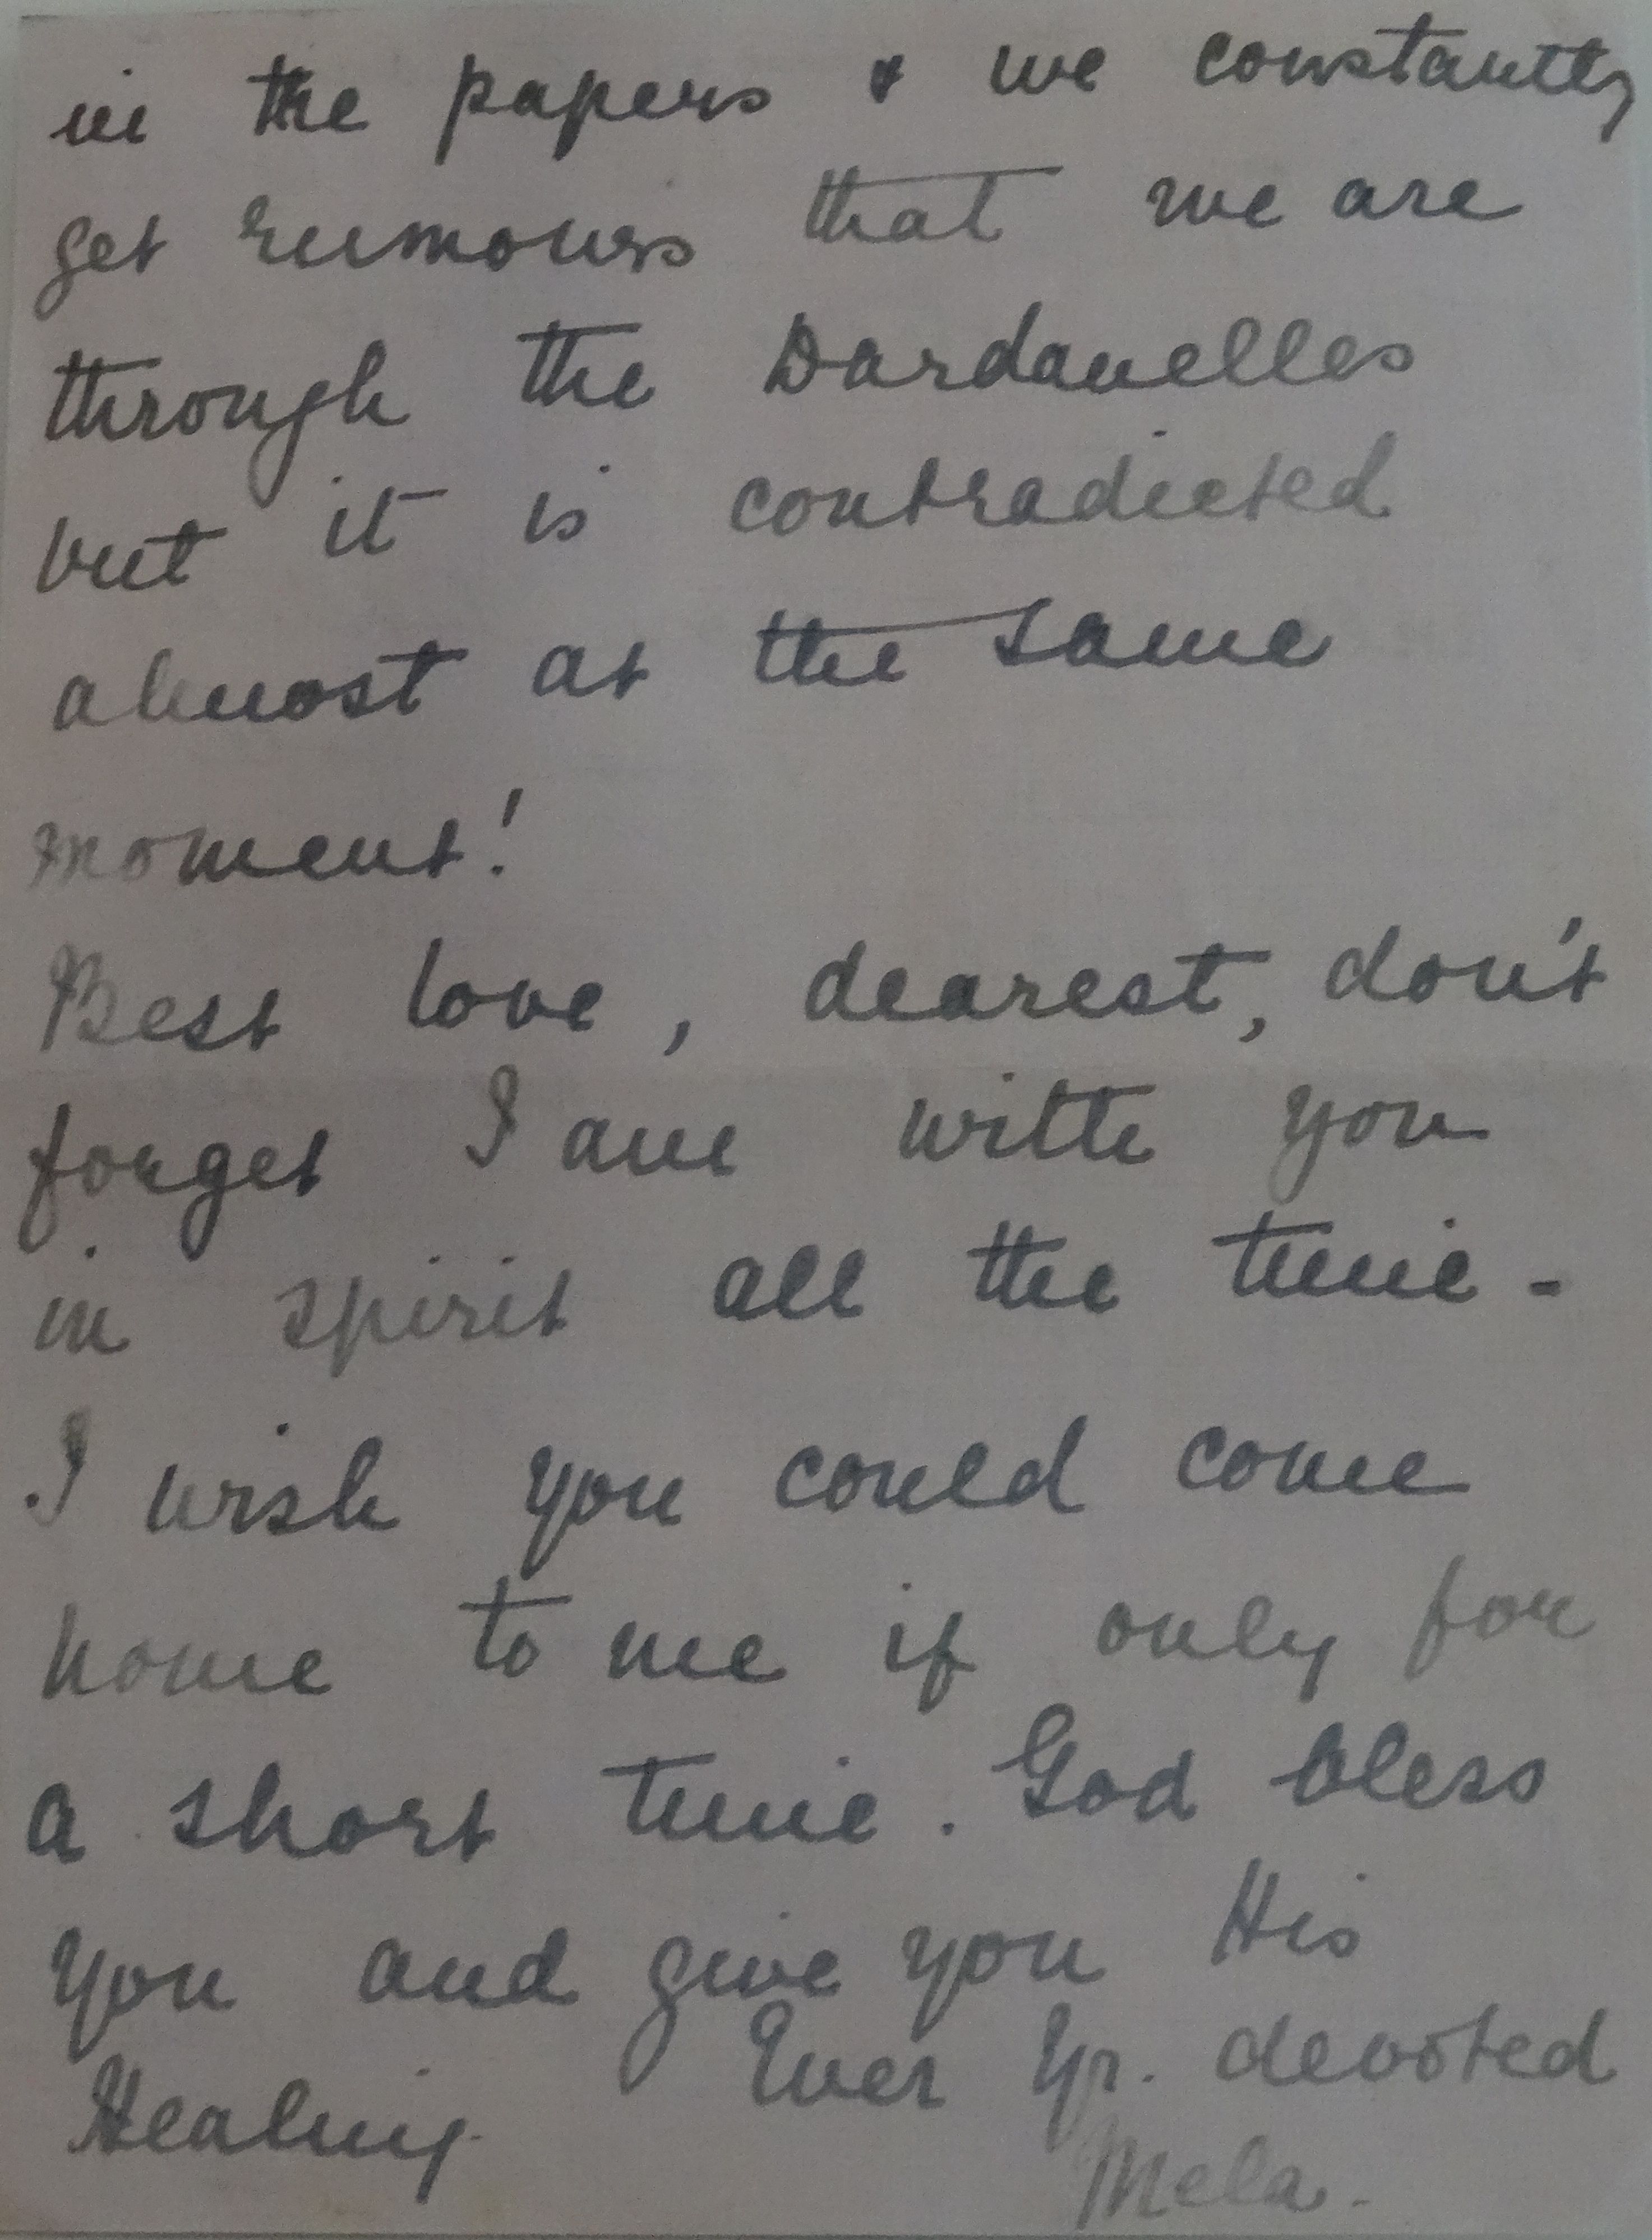 in the papers & we constantly
get rumours that we are
through the Dardanelles
but it is contradicted
almost at the same
moment!
Best love, dearest, don't
forget I am with you
in spirit all the time -
I wish you could come
home to me if only for
a short time. God bless
you and give you His
Healing. Ever Yr. devoted
Mela.